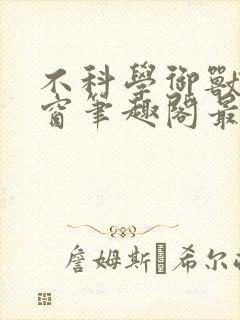 不科學御獸
窗筆趣閣最
詹姆斯�希尔